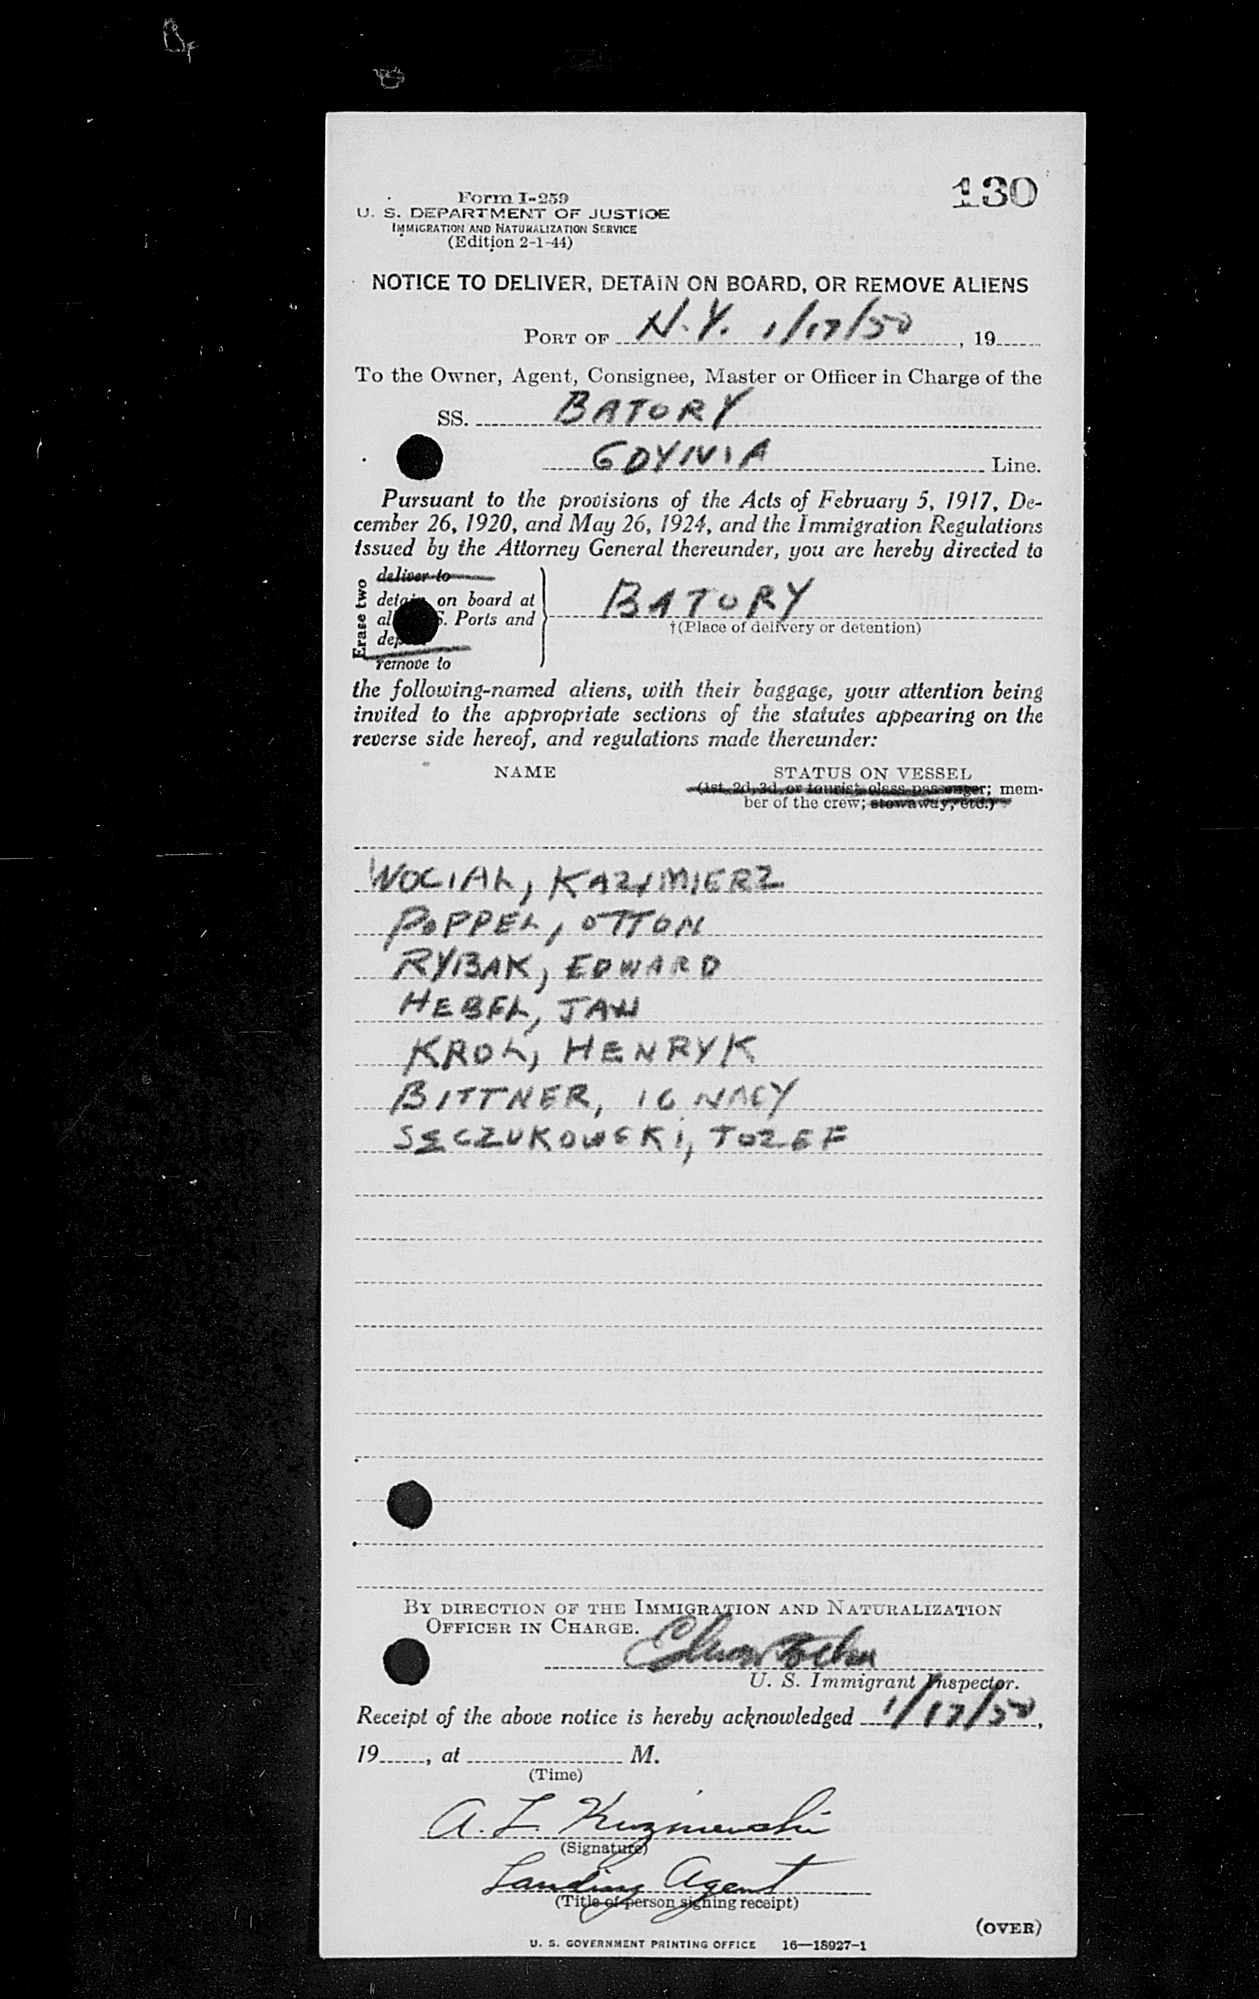 130
Form I-259
U. S. DEPARTMENT OF JUSTICE
IMMIGRATION AND NATURALIZATION SERVICE
(Edition 2-1-44)
NOTICE TO DELIVER, DETAIN ON BOARD, OR REMOVE ALIENS
PORT OF N.Y. 1/17/50, 19
To the Owner, Agent, Consignee, Master or Officer in Charge of the
SS. BATORY
GDYNIA Line.
Pursuant to the provisions of the Acts of February 5, 1917, De-
cember 26, 1920, and May 26, 1924, and the Immigration Regulations
issued by the Attorney General thereunder, you are hereby directed to
Erase two
deliver to
detain on board at
all U. S. Ports and
deport
remove to
BATORY
†(Place of delivery or detention)
the following-named aliens, with their baggage, your attention being
invited to the appropriate sections of the statutes appearing on the
reverse side hereof, and regulations made thereunder:
NAME STATUS ON VESSEL
(1st, 2d, 3d, or tourist class passenger; mem-
ber of the crew; stowaway, etc.)
WOCIAL, KAZIMIERZ
POPPEL, OTTON
RYBAK, EDWARD
HEBEL, JAN
KROL, HENRYK
BITTNER, IGNACY
SECZUKOWSKI, JOZEF
BY DIRECTION OF THE IMMIGRATION AND NATURALIZATION
OFFICER IN CHARGE.
U. S. Immigrant Inspector.
Receipt of the above notice is hereby acknowledged 1/17/50,
19, at M.
(Time)
A. L. Kuzniewski
(Signature)
Landing Agent
(Title of person signing receipt)
(OVER)
U. S. GOVERNMENT PRINTING OFFICE 16—18927-1